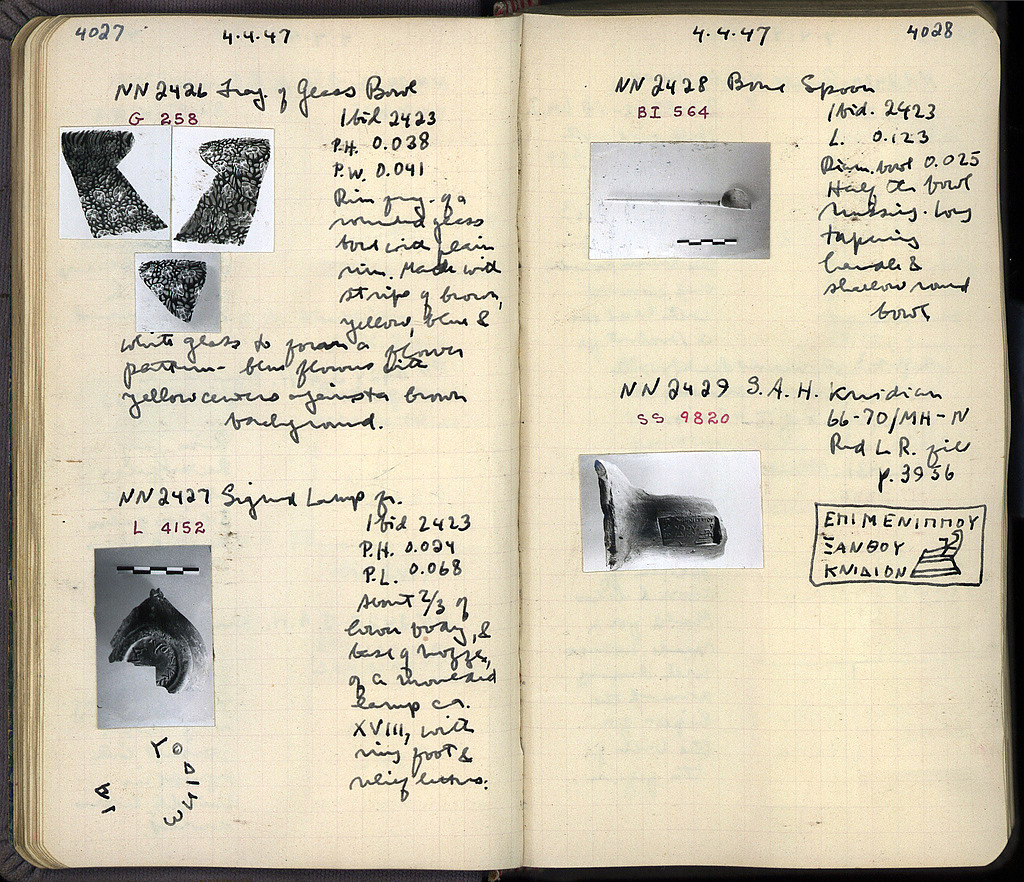 4027
4.4.47
NN 2426 Frag. of Glass Bowl
G 258
Ibid 2423
P.H. 0.038
P.W. 0.041
Rim frag. of a
rounded glass
bowl with plain
rim. Made with
strips of brown,
yellow, blue &
white glass to form a flower
pattern - blue flowers with
yellow centers against a brown
background.
NN 2427 Signed Lamp fr.
L 4152
Ibid 2423
P.H. 0.024
P.L. 0.068
About 2/3 of
lower body, &
base of nozzle,
of a moulded
lamp ca.
XVIII, with
ring foot &
relief letters.
4.4.47
4028
NN 2428 Bone Spoon
BI 564
Ibid. 2423
L. 0.123
Diam. bowl 0.025
Half the bowl
missing. Long
tapering
handle &
shallow round
bowl
NN 2429 S.A.H. Knidian
SS 9820
66-70/MH-N
Red L.R. fill
p. 3956
ΕΠΙΜΕΝΙΠΠΟΥ
ΞΑΝΘΟΥ
ΚΝΙΔΙΟΝ